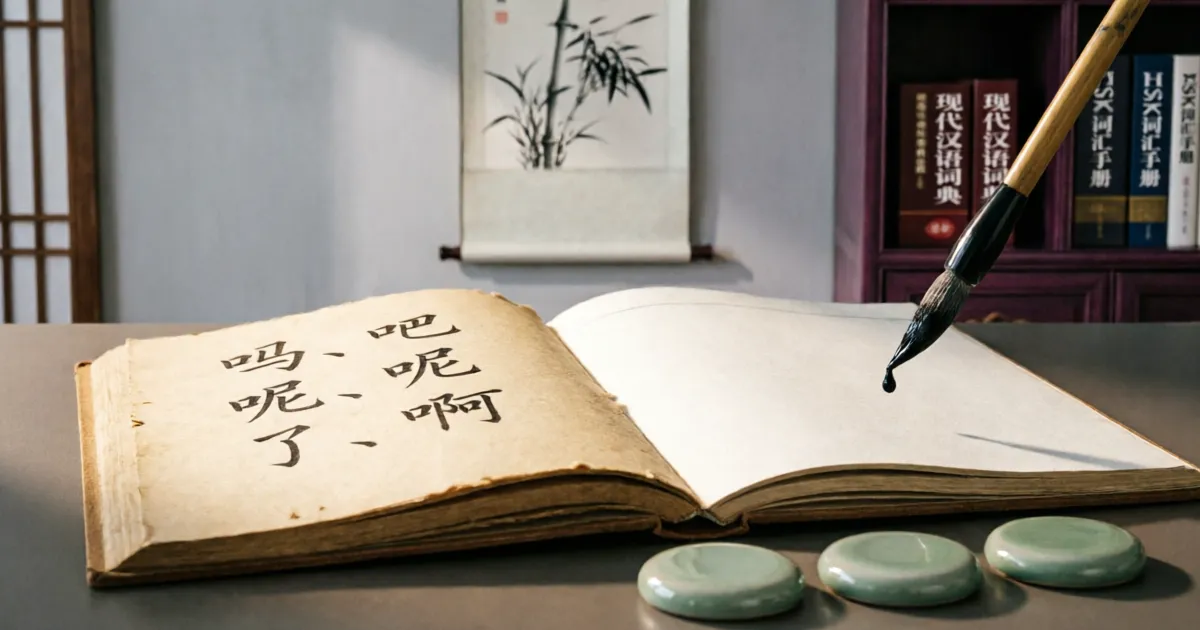 吗、吧
呢、呢
了、啊
现代汉语词典
现代汉语词典
SK词汇手册
HSK词汇手册
SK词汇手册